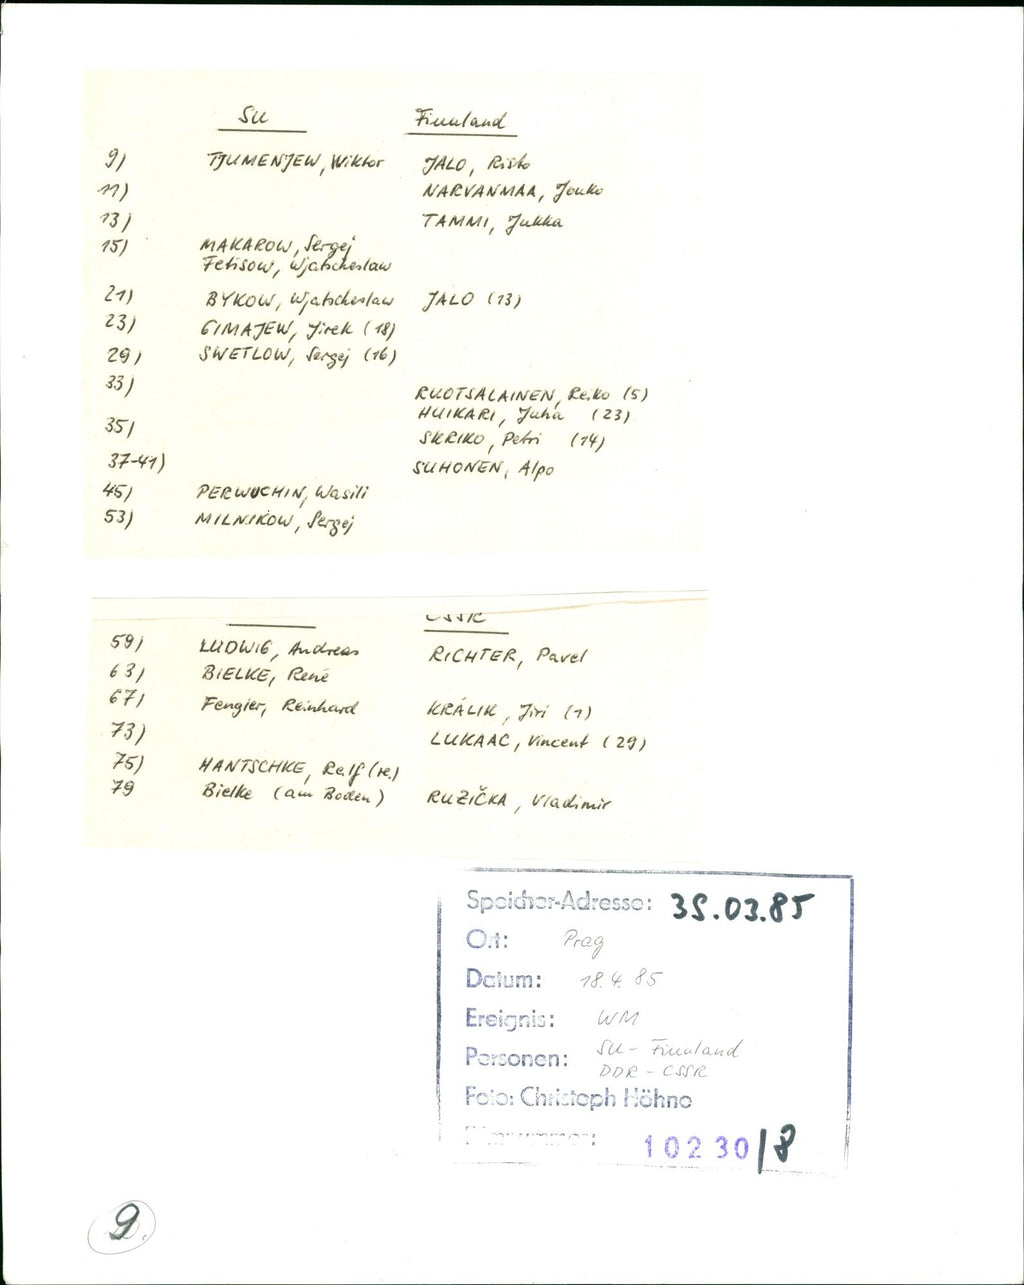 SU Finnland
9) TJUMENJEW, Wiktor JALO, Risto
11) NARVANMAA, Jouko
13) TAMMI, Jukka
15) MAKAROW, Sergej
Fetisow, Wjatscheslaw
21) BYKOW, Wjatscheslaw JALO (13)
23) GIMAJEW, Jirek (18)
29) SWETLOW, Sergej (16)
33) RUOTSALAINEN, Reiko (5)
HUIKARI, Juha (23)
35) SKRIKO, Petri (14)
37-41) SUHONEN, Alpo
45) PERWUCHIN, Wasili
53) MILNIKOW, Sergej
CSSR
59) LUDWIG, Andreas RICHTER, Pavel
63) BIELKE, René
67) Fengier, Reinhard KRÁLIK, Jiri (1)
73) LUKAAC, Vincent (29)
75) HANTSCHKE, Ralf (re.)
79 Bielke (am Boden) RUZIČKA, Vladimir
Speicher-Adresse: 35.03.85
Ort: Prag
Datum: 18.4.85
Ereignis: WM
Personen: SU - Finnland
DDR - CSSR
Foto: Christoph Höhne
10230/8
9.